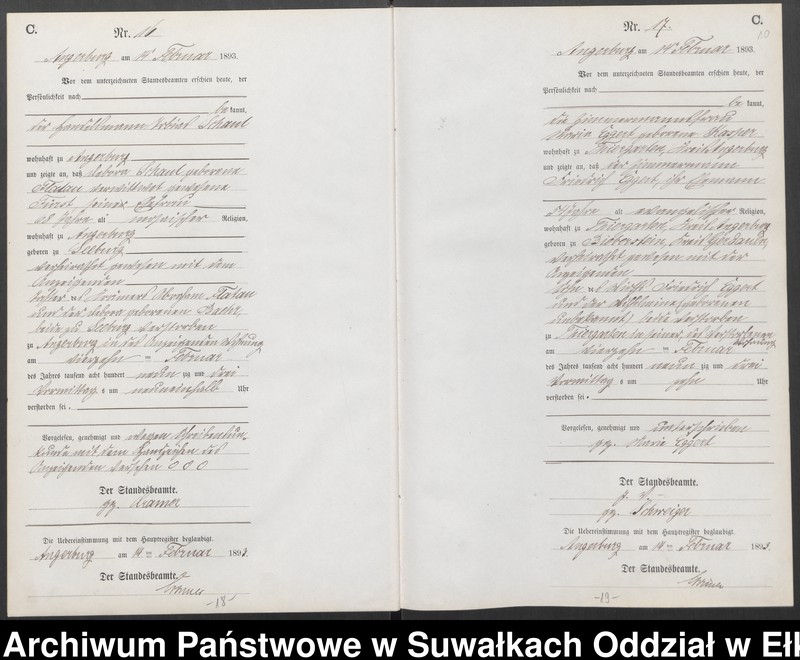 C.
Nr. 16
Angerburg am 14ten Februar 1893.
Vor dem unterzeichneten Standesbeamten erschien heute, der
Persönlichkeit nach
be kannt,
der Handelsmann Tobias Schaul
wohnhaft zu Angerburg
und zeigte an, daß Debora Schaul geborene
Flatau verwittwet gewesene
Fürst seiner Ehefrau
68 Jahre alt mosaischer Religion,
wohnhaft zu Angerburg
geboren zu Seeburg
verheirathet gewesen mit dem
Anzeigenden
Abraham Flatau
und der Debora geborenen
beide zu Seeburg verstorben
zu Angerburg in des Anzeigenden Wohnung
am vierzehn ten Februar
des Jahres tausend acht hundert neun zig und drei
Vormittag s um neuneinhalb Uhr
verstorben sei.
Vorgelesen, genehmigt und wegen Schreibenun-
kunde mit dem Handzeichen des
Anzeigenden versehen 000
Der Standesbeamte.
gez. Kramer
Die Uebereinstimmung mit dem Hauptregister beglaubigt.
Angerburg am 14 ten Februar 1893.
Der Standesbeamte.
-18-
C.
10
Nr. 17.
Angerburg am 14ten Februar 1893.
Vor dem unterzeichneten Standesbeamten erschien heute, der
Persönlichkeit nach
be kannt,
die Zimmermannsfrau
Maria Eggert geborene Kasper
wohnhaft zu Thiergarten, Kreis Angerburg
und zeigte an, daß der Zimmermann
Friedrich Eggert, ihr Ehemann
Jahre alt evangelischer Religion,
wohnhaft zu Thiergarten, Kreis Angerburg
geboren zu Bieberstein, Kreis Gerdauen,
verheirathet gewesen mit der
Anzeigenden
Sohn des Wirth Friedrich Eggert
und der Wilhelmine geborenen
unbekannt) beide verstorben
zu Thiergarten in seiner, des Verstorbenen
Wohnung
am vierzehn ten Februar
des Jahres tausend acht hundert neun zig und drei
Vormittag s um zehn Uhr
verstorben sei.
Vorgelesen, genehmigt und unterschrieben
gez. Maria Eggert
Der Standesbeamte.
J. V.
gez. Schweiger
Die Uebereinstimmung mit dem Hauptregister beglaubigt.
Angerburg am 14 ten Februar 1893.
Der Standesbeamte.
-19-
Archiwum Państwowe w Suwałkach Oddział w Ełk